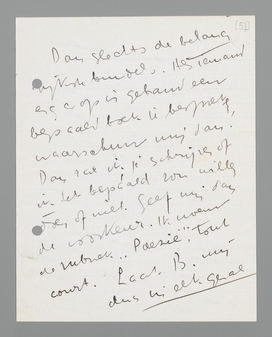 [5]
Dan slechts de belang
rijkste bundels. Als iemand
erg erop is gebrand een
bepaald boek te bespreken
waarschuw mij dan.
Dan zal ik je schrijven of
ik het bepaald zou willen
doen of niet. Geef mij dan
de voorkeur. Ik noem
de rubriek "Poesie", tout
court. Laat B. mij
dus in elk geval